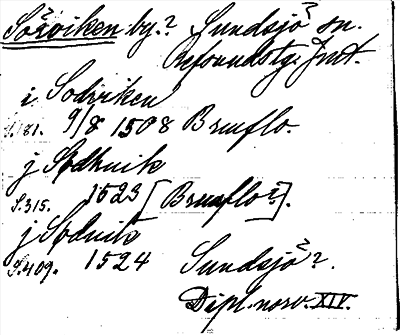 Sörviken by.? Sundsjö? sn.
Refsundstg. Jmt.
i Sodviken
S. 81. 9/8 1508 Brunflo.
j Sodhuik
S.315. 1523 [Brunflo?].
j Soduik
S.409. 1524 Sundsjö?.
Dipl. norv. XIV.